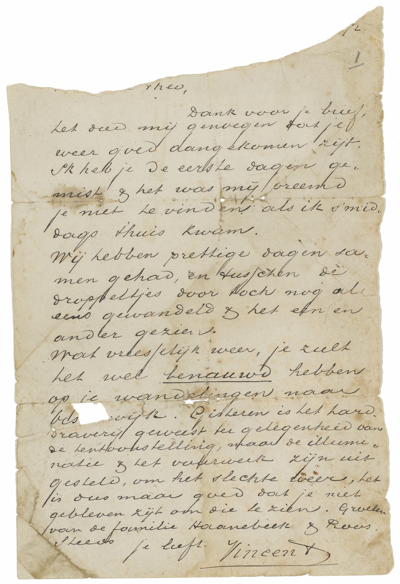 72
1
Theo,
Dank voor je brief,
het deed mij genoegen dat je
weer goed aangekomen zijt.
Ik heb je de eerste dagen ge-
mist & het was mij vreemd
je niet te vinden als ik s'mid-
dags t'huis kwam.
Wij hebben prettige dagen sa-
men gehad, en tusschen de
droppeltjes door toch nog al
eens gewandeld & het een en
ander gezien.
Wat vreesselijk weer, je zult
het wel benauwd hebben
op je wandelingen naar
wijk. Gisteren is het hard-
draverij geweest ter gelegenheid van
de tentoonstelling, maar de illumi-
natie & het vuurwerk zijn uit
gesteld, om het slechte weer, het
is dus maar goed dat je niet
gebleven zijt om die te zien. Groeten
van de familie Haanebeek & Roos.
Steeds
je liefh. Vincent